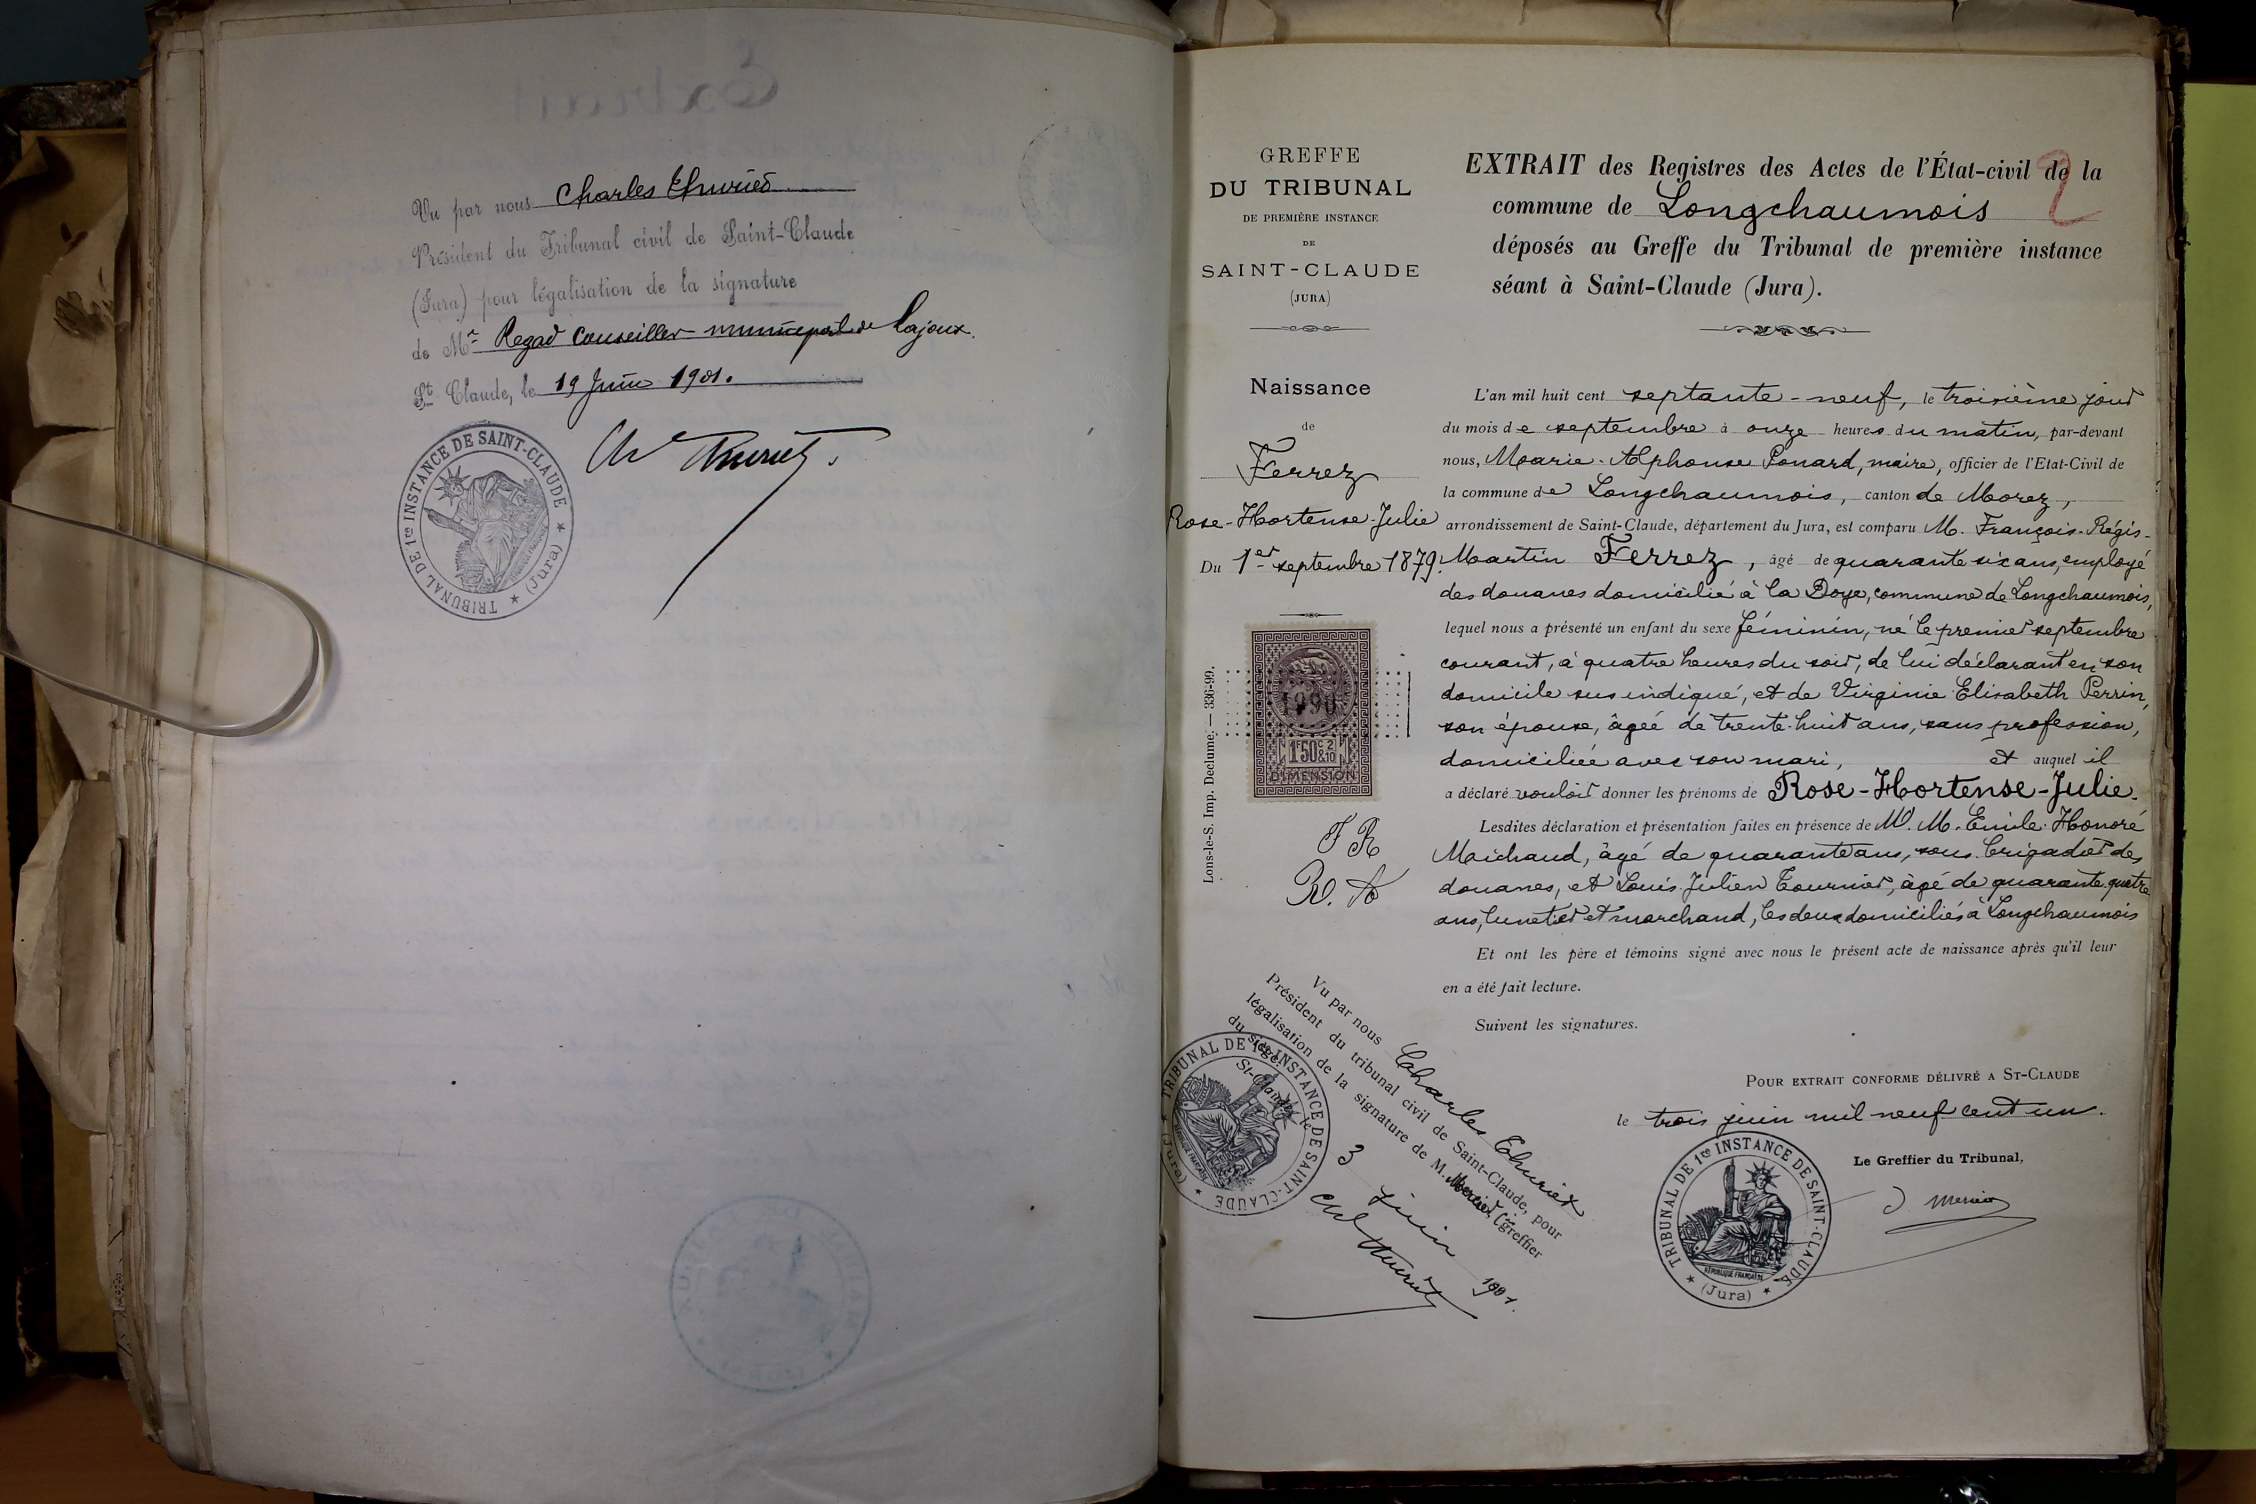 Vu par nous Charles Thuriet
Président du Tribunal civil de Saint-Claude
(Jura) pour légalisation de la signature
de Mr Regad Conseiller municipal de Lajoux.
St Claude, le 19 Juin 1901.
TRIBUNAL DE 1re INSTANCE DE SAINT-CLAUDE
(Jura)
Ch Thuriet
GREFFE
DU TRIBUNAL
DE PREMIÈRE INSTANCE
DE
SAINT-CLAUDE
(JURA)
Naissance
de
Ferrez
Rose-Hortense-Julie
Du 1er septembre 1879.
1F50c 2/10
DIMENSION
Lons-le-S. Imp. Declume. — 336-99.
EXTRAIT des Registres des Actes de l'État-civil de la
2
commune de Longchaumois
déposés au Greffe du Tribunal de première instance
séant à Saint-Claude (Jura).
L'an mil huit cent septante-neuf, le troisième jour
du mois de septembre à onze heures du matin, par-devant
nous, Marie-Alphonse Ponard, maire, officier de l'Etat-Civil de
la commune de Longchaumois, canton de Morez,
arrondissement de Saint-Claude, département du Jura, est comparu M. François-Régis-
Martin Ferrez, âgé de quarante six ans, employé
des douanes domicilié à la Doye, commune de Longchaumois,
lequel nous a présenté un enfant du sexe féminin, né le premier septembre
courant, à quatre heures du soir, de lui déclarant en son
domicile sus indiqué, et de Virginie Elisabeth Perrin,
son épouse, âgée de trente-huit ans, sans profession,
domiciliée avec son mari, et auquel il
a déclaré vouloir donner les prénoms de Rose-Hortense-Julie.
Lesdites déclaration et présentation faites en présence de M. M. Emile-Honoré
Maichaud, âgé de quarante ans, sous-brigadier des
douanes, et Louis-Julien Tournier, âgé de quarante-quatre
ans, lunetier et marchand, les deux domiciliés à Longchaumois
Et ont les père et témoins signé avec nous le présent acte de naissance après qu'il leur
en a été fait lecture.
Suivent les signatures.
Pour extrait conforme délivré a St-Claude
le trois juin mil neuf cent un.
Le Greffier du Tribunal,
TRIBUNAL DE 1re INSTANCE DE SAINT-CLAUDE
RÉPUBLIQUE FRANÇAISE
(Jura)
Mercier
Vu par nous Charles Thuriet
Président du tribunal civil de Saint-Claude, pour
légalisation de la signature de M. Mercier, greffier
du siège.
St-Claude, le 3 Juin 1901.
Ch Thuriet
TRIBUNAL DE 1re INSTANCE DE SAINT-CLAUDE
(Jura)